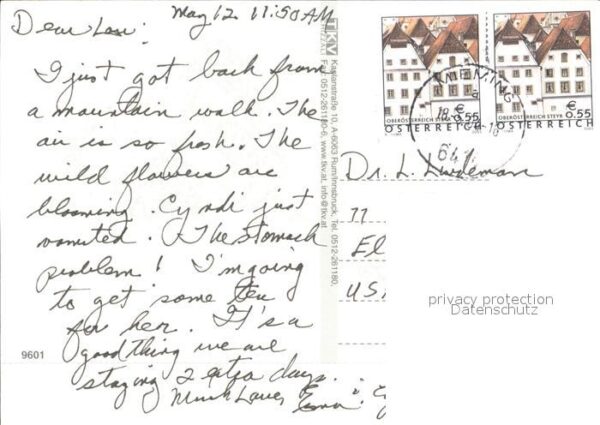 May 12 11:50 AM
Dear Lou:
I just got back from
a mountain walk. The
air is so fresh. The
wild flowers are
blooming. Cyndi just
vomited. The stomach
problem! I'm going
to get some tea
for her. It's a
good thing we are
staying 2 extra days.
Much Love,
9601
TKV
Kaplanstraße 10, A-6063 Rum/Innsbruck, Tel. 0512-261180,
Fax 0512-261180-6, www.tkv.at, info@tkv.at
€ 0,55
OBERÖSTERREICH STEYR
ÖSTERREICH
€ 0,55
OBERÖSTERREICH STEYR
ÖSTERREICH
Dr. L. Lindeman
77
El
USA
privacy protection
Datenschutz